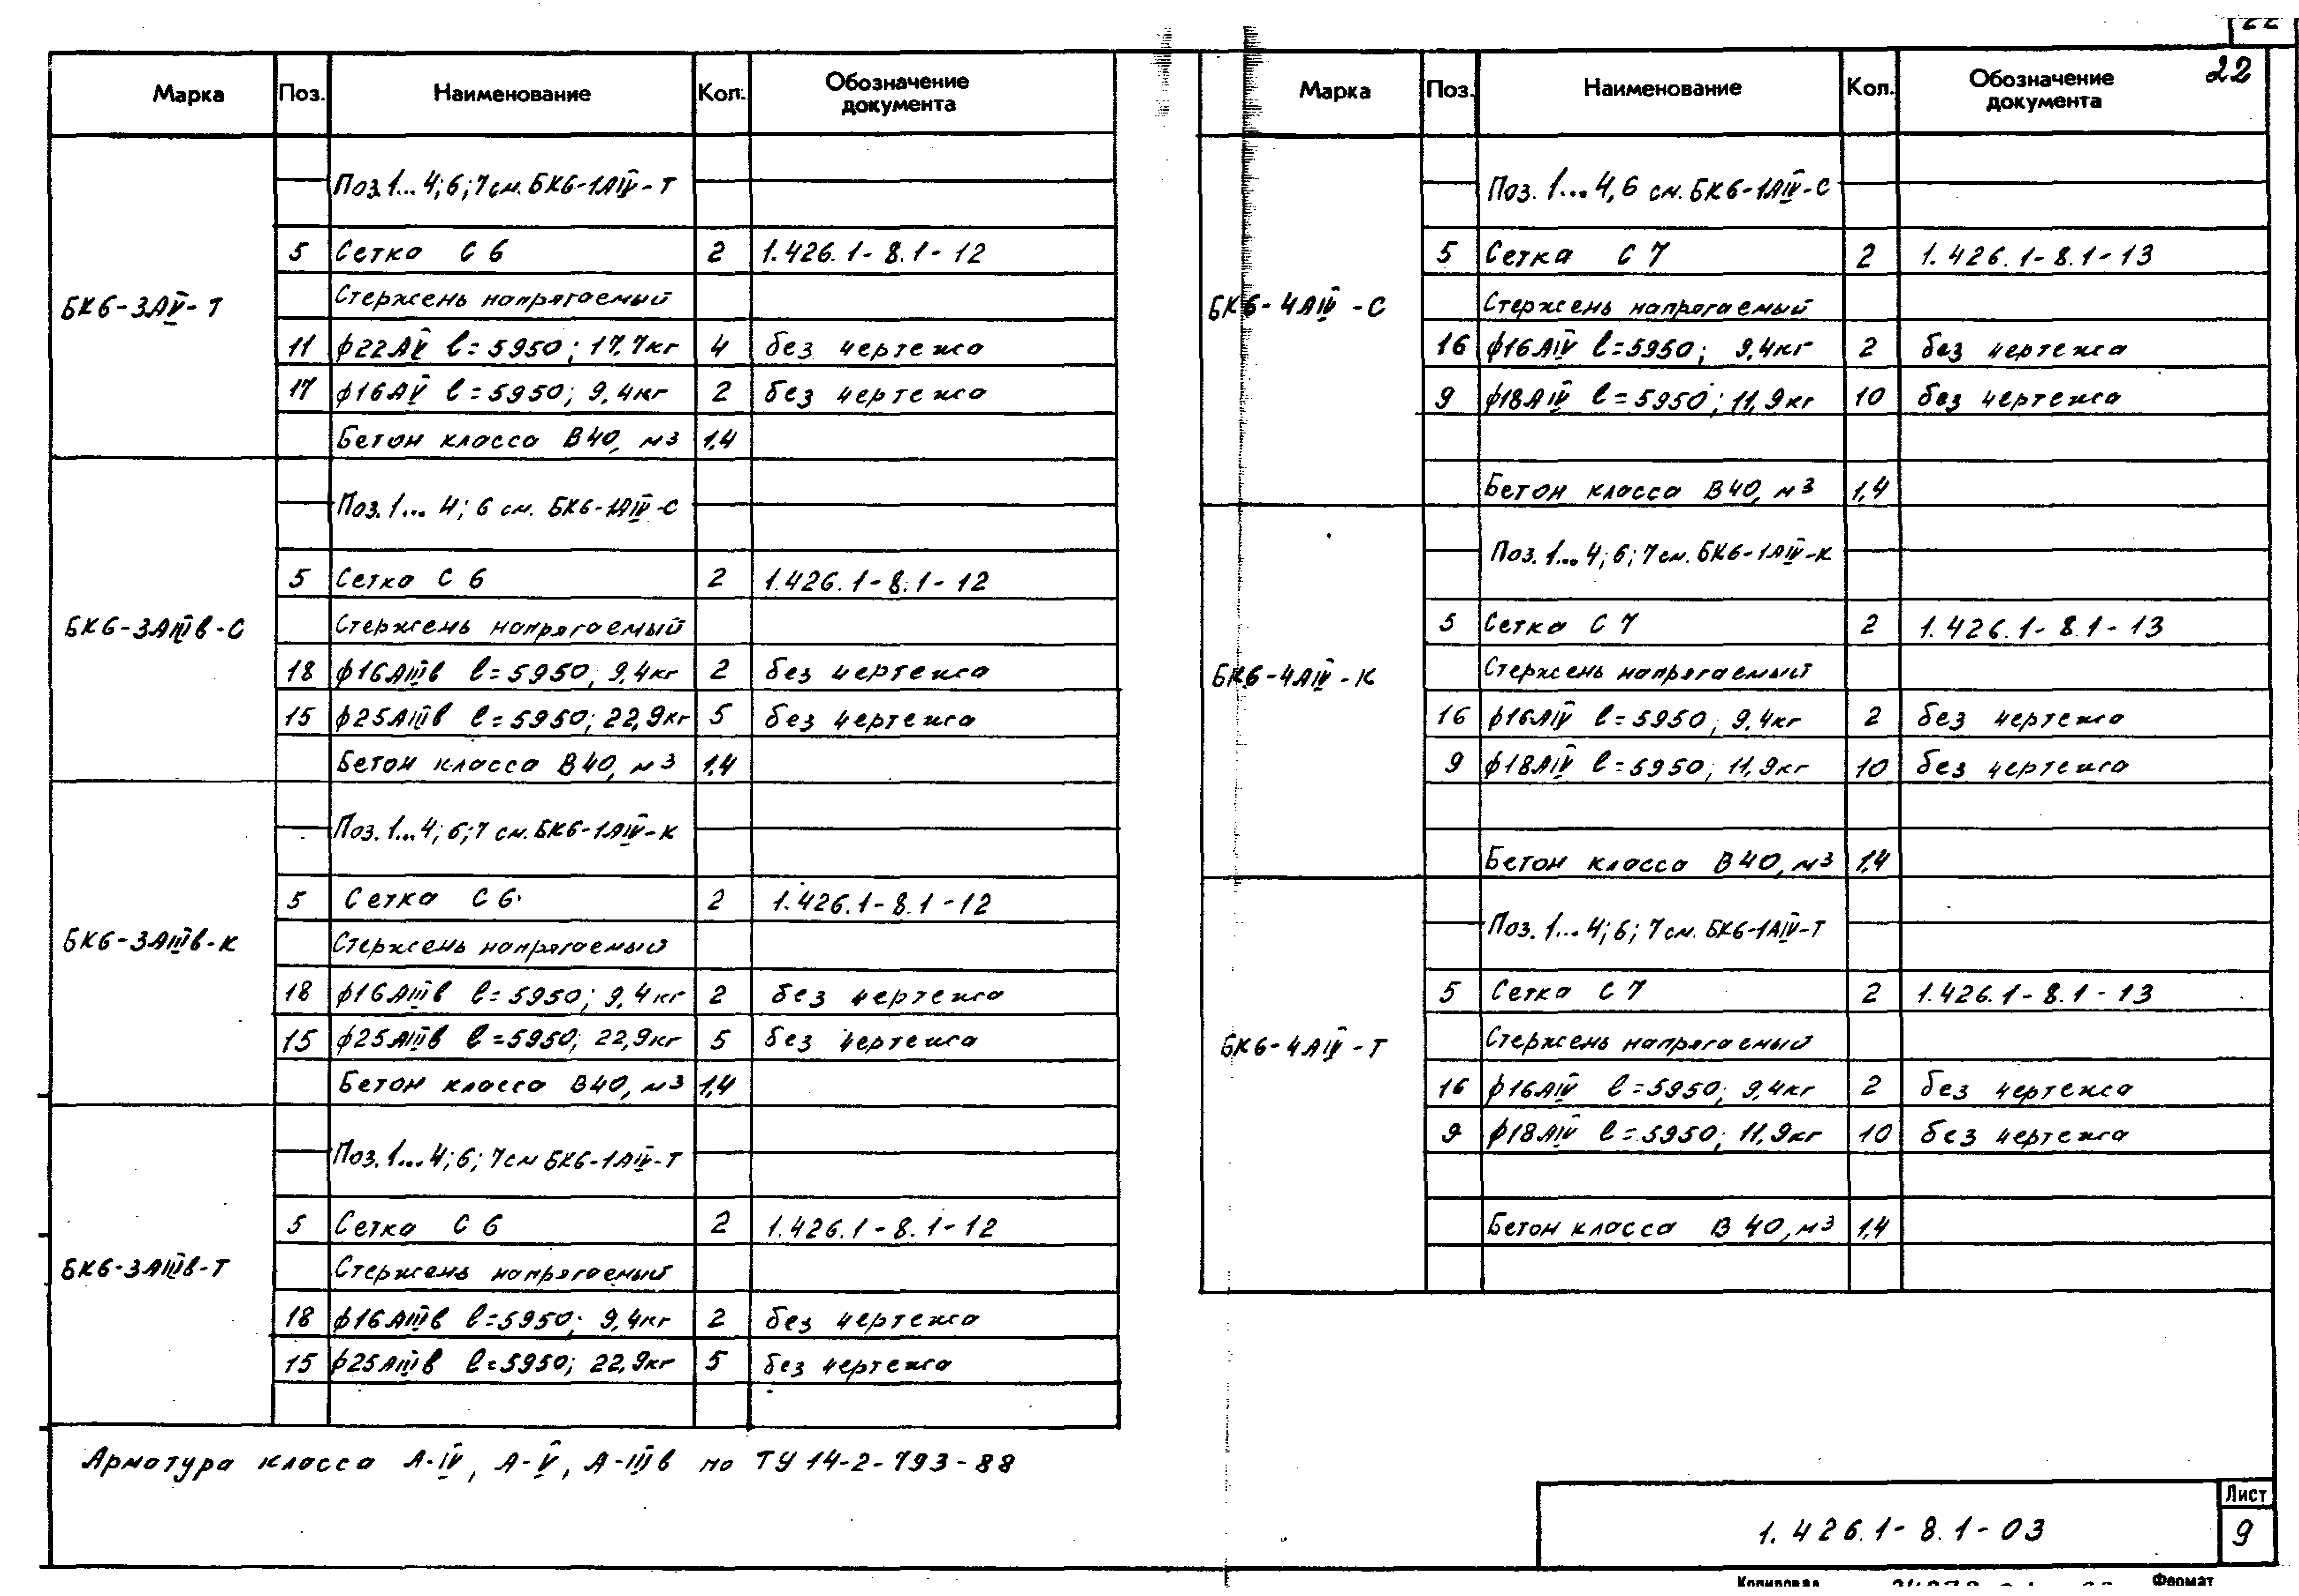 22
Марка Поз. Наименование Кол. Обозначение документа
БК6-3АV-Т
Поз.1...4;6;7 см. БК6-1АIV-Т
5 Сетка С6 2 1.426.1-8.1-12
Стержень напрягаемый
11 ф22АV l=5950; 17,7кг 4 без чертежа
17 ф16АV l=5950; 9,4кг 2 без чертежа
Бетон класса В40, м3 1,4
БК6-3АIIIв-С
Поз.1...4;6 см. БК6-1АIV-С
5 Сетка С6 2 1.426.1-8.1-12
Стержень напрягаемый
18 ф16АIIIв l=5950; 9,4кг 2 без чертежа
15 ф25АIIIв l=5950; 22,9кг 5 без чертежа
Бетон класса В40, м3 1,4
БК6-3АIIIв-К
Поз.1...4;6;7 см. БК6-1АIV-К
5 Сетка С6 2 1.426.1-8.1-12
Стержень напрягаемый
18 ф16АIIIв l=5950; 9,4кг 2 без чертежа
15 ф25АIIIв l=5950; 22,9кг 5 без чертежа
Бетон класса В40, м3 1,4
БК6-3АIIIв-Т
Поз.1...4;6;7 см БК6-1АIV-Т
5 Сетка С6 2 1.426.1-8.1-12
Стержень напрягаемый
18 ф16АIIIв l=5950; 9,4кг 2 без чертежа
15 ф25АIIIв l=5950; 22,9кг 5 без чертежа
Арматура класса А-IV, А-V, А-IIIв по ТУ 14-2-793-88
Марка Поз. Наименование Кол. Обозначение документа 22
БК6-4АIV-С
Поз. 1...4,6 см. БК6-1АIV-С
5 Сетка С7 2 1.426.1-8.1-13
Стержень напрягаемый
16 ф16АIV l=5950; 9,4кг 2 без чертежа
9 ф18АIV l=5950; 11,9кг 10 без чертежа
Бетон класса В40, м3 1,4
БК6-4АIV-К
Поз.1...4;6;7 см. БК6-1АIV-К
5 Сетка С7 2 1.426.1-8.1-13
Стержень напрягаемый
16 ф16АIV l=5950; 9,4кг 2 без чертежа
9 ф18АIV l=5950; 11,9кг 10 без чертежа
Бетон класса В40, м3 1,4
БК6-4АIV-Т
Поз.1...4;6;7 см. БК6-1АIV-Т
5 Сетка С7 2 1.426.1-8.1-13
Стержень напрягаемый
16 ф16АIV l=5950; 9,4кг 2 без чертежа
9 ф18АIV l=5950; 11,9кг 10 без чертежа
Бетон класса В40, м3 1,4
1.426.1-8.1-03
Лист
9
Копировал Формат